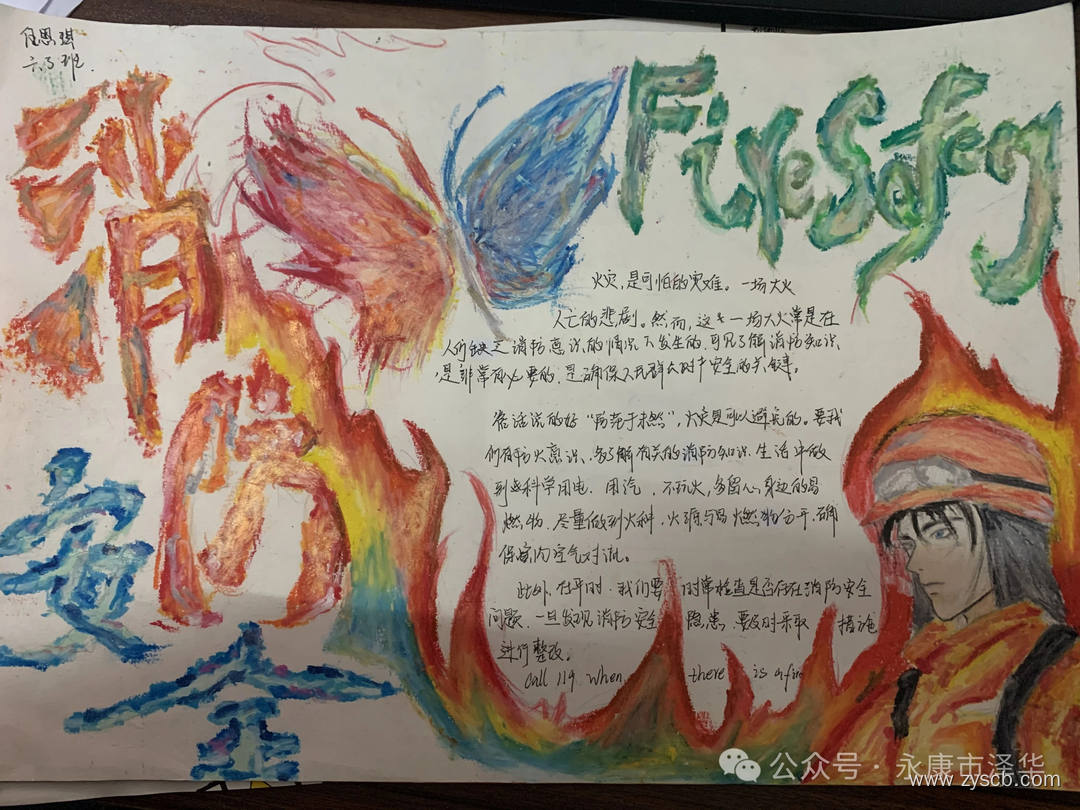 任思琪
六(3)班
消防安全
Fire Safety
火灾,是可怕的灾难。一场大火
人亡的悲剧。然而,这些一场大火常是在
人们缺乏消防意识的情况下发生的,可见了解消防知识
,是非常有必要的,是确保人民群众财产安全的关键。
俗话说的好“防范于未然”,火灾是可以避免的。要我
们有防火意识、多了解有关的消防知识、生活中做
到些科学用电、用汽,不玩火,多留心身边的易
燃物,尽量做到火种,火源与易燃物分开,确
保室内空气对流。
此外,在平时,我们要时常检查是否存在消防安全
问题,一旦发现消防安全隐患,要及时采取措施
进行整改。
Call 119 when there is a fire
公众号·永康市泽华
www.zyscb.com